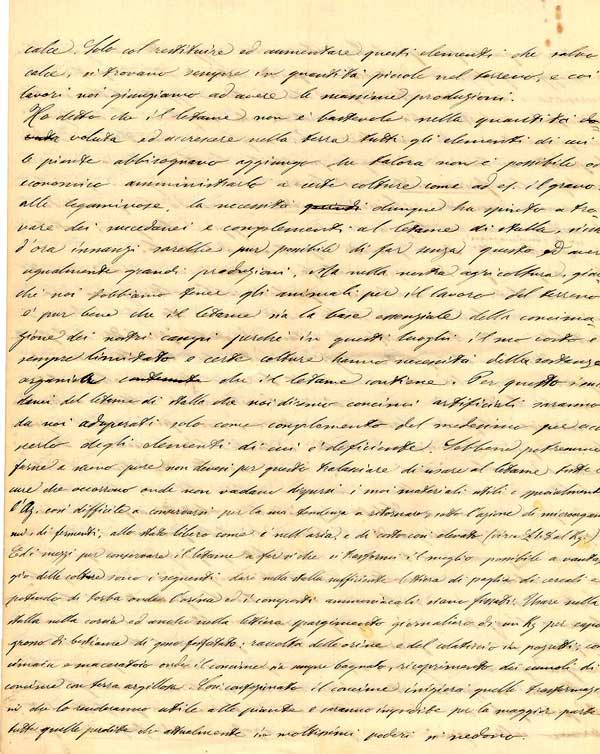 calce. Solo col restituire ed aumentare questi elementi che salvo
calce, si trovano sempre in quantità piccole nel terreno, e coi
lavori noi giungiamo ad avere le massime produzioni.
Ho detto che il letame non è bastevole nella quantità
voluta ed accrescere nella terra tutti gli elementi di cui
le piante abbisognano aggiungo che talora non è possibile o
economico amministrarlo a certe colture come ad es. il grano
alle leguminose, la necessità quindi dunque ha spinto a tro-
vare dei succedanei e complementi al letame di stalla, sicchè
d'ora innanzi sarebbe pur possibile di far senza questo ed aver
ugualmente grandi produzioni. Ma nella nostra agricoltura, giac-
chè noi dobbiamo tener gli animali per il lavoro del terreno
è pur bene che il letame sia la base essenziale della concima-
zione dei nostri campi perchè in questi luoghi il suo costo è
sempre limitato e certe colture hanno necessità della sostanza
organica contenuta che il letame contiene. Per questo i succe-
danei del letame di stalla che noi diciamo concimi artificiali saranno
da noi adoperati solo come complemento del medesimo per
degli elementi di cui è deficiente. Sebbene potremmo
farne a meno pure non devesi per questo tralasciare di usare al letame tutte le
cure che occorrono onde non vadano dispersi i suoi materiali utili e specialmente
l'Az. così difficile a conservarsi per la sua tendenza a ritornare, sotto l'azione di microrgani-
smi, di fermenti, allo stato libero come è nell'aria, e di costo così elevato (circa £ 1.5 al Kg.)
Ed i mezzi per conservare il letame e far sì che si trasformi il meglio possibile a vantag-
gio delle colture sono i seguenti: dare nella stalla sufficiente lettiera di paglia di cereali e
potendo di torba onde l'orina ed i composti ammoniacali siano fissati. Usare nella
stalla nella corsia ed anche nella lettiera spargimento giornaliero di un Kg per capo
grosso di bestiame di gesso fosfatato: raccolta delle orine e del colaticcio in pozzetti; con-
cimaia e maceratoio onde il concime sia sempre bagnato, ricoprimento dei cumuli di
concime con terra argillosa. Così confezionato il concime subirà quelle trasformazio-
ni che lo renderanno utile alle piante e saranno impedite per la maggior parte
tutte quelle perdite che attualmente in moltissimi poderi si vedono.